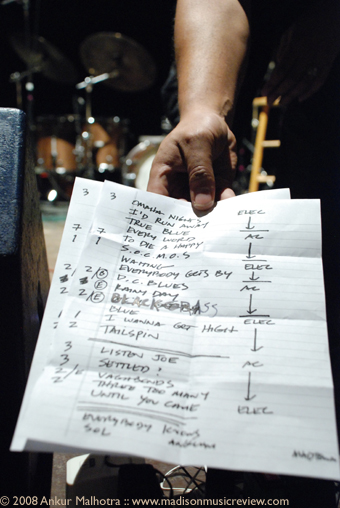 3 3 OMAHA NIGHTS ELEC
I'D RUN AWAY
TRUE BLUE
7 7 EVERY WORD AC
1 1 TO DIE A HAPPY
S.O.C.M.O.S
WAITING ELEC
2 2/E EVERYBODY GETS BY
2/E D.C. BLUES AC
2/E RAINY DAY
BLUE ELEC
1 2 I WANNA GET HIGH
TAILSPIN
3 LISTEN JOE
3 SETTLED AC
2/E VAGABONDS
2 THREE TOO MANY
UNTIL YOU CAME ELEC
EVERYBODY KNOWS
SOL
MADISON
© 2008 Ankur Malhotra :: www.madisonmusicreview.com